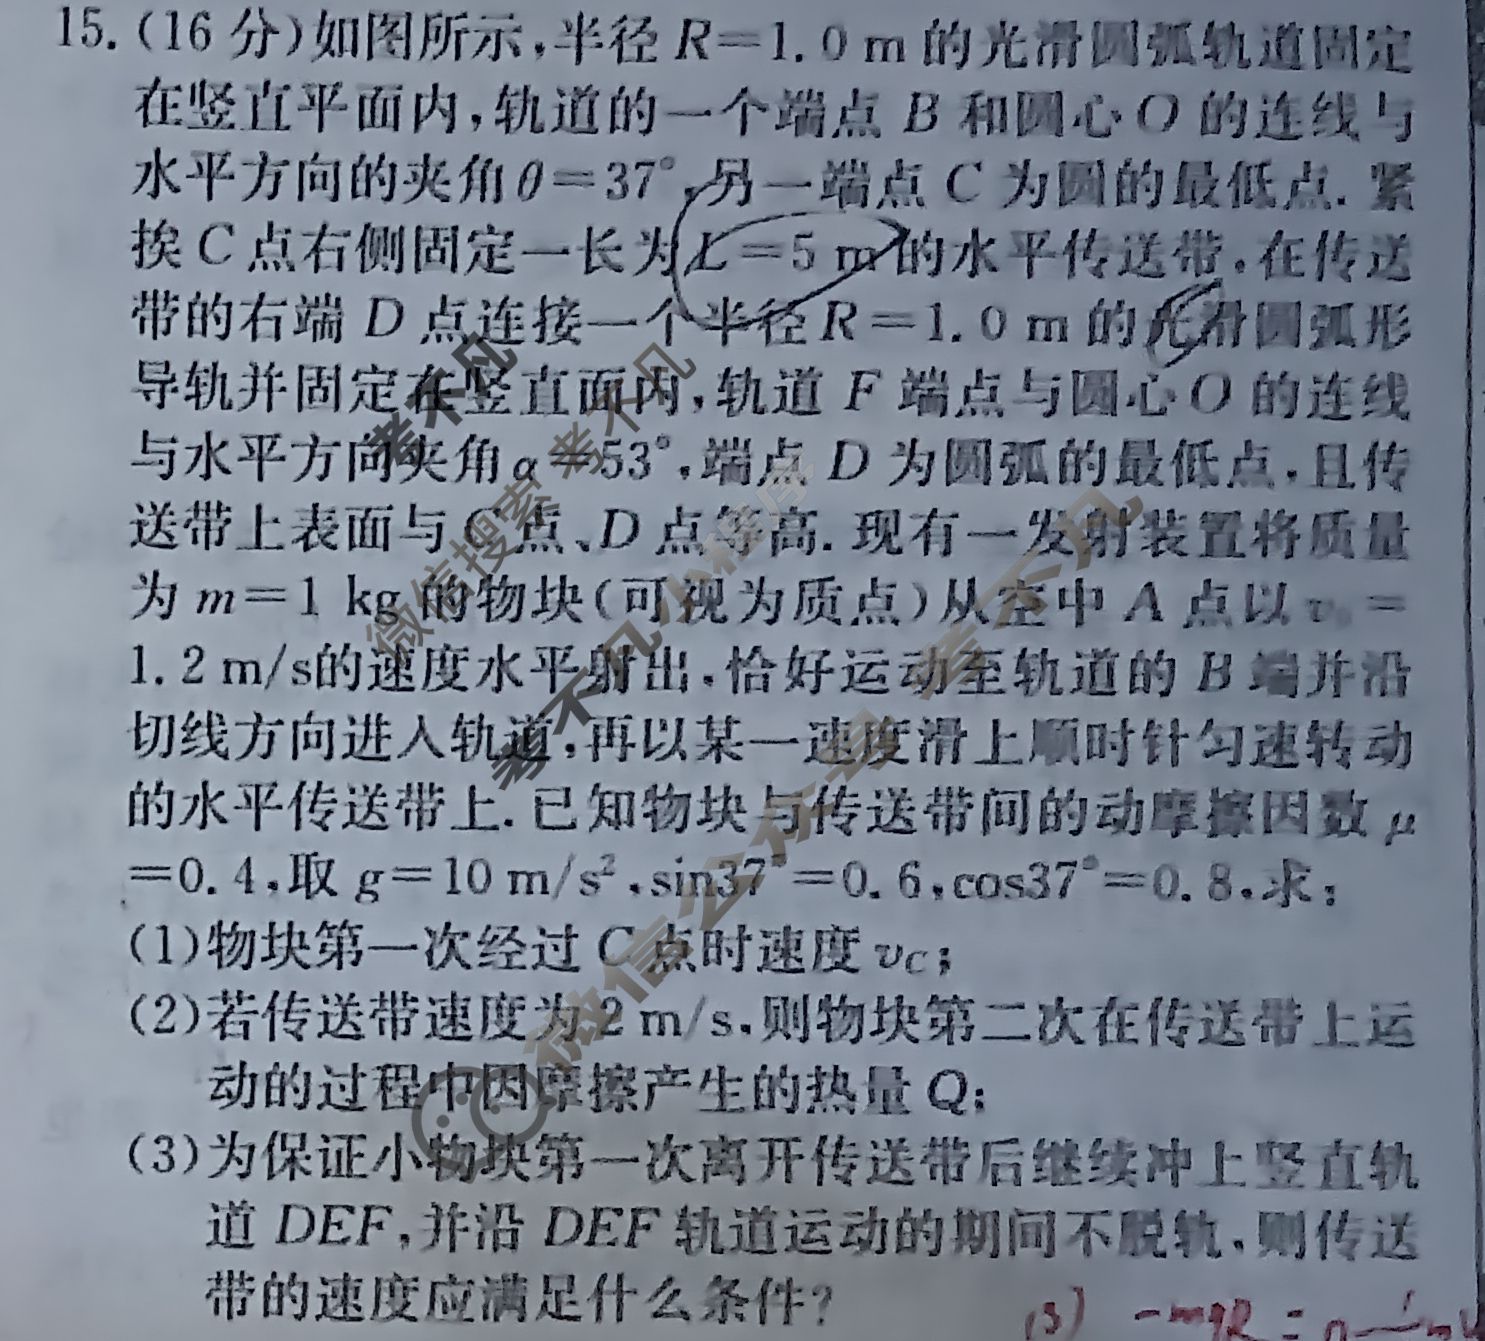 15.(16 分)如图所示,半径 R=1.0 m 的光滑圆弧轨道固定
在竖直平面内,轨道的一个端点 B 和圆心 O 的连线与
水平方向的夹角 θ=37°,另一端点 C 为圆的最低点. 紧
挨 C 点右侧固定一长为 L=5 m 的水平传送带,在传送
带的右端 D 点连接一个半径 R=1.0 m 的光滑圆弧形
导轨并固定在竖直面内,轨道 F 端点与圆心 O 的连线
与水平方向夹角 α=53°,端点 D 为圆弧的最低点,且传
送带上表面与 C 点、D 点等高. 现有一发射装置将质量
为 m=1 kg 的物块(可视为质点)从空中 A 点以 v₀=
1.2 m/s的速度水平射出,恰好运动至轨道的 B 端并沿
切线方向进入轨道,再以某一速度滑上顺时针匀速转动
的水平传送带上. 已知物块与传送带间的动摩擦因数 μ
=0.4,取 g=10 m/s²,sin37°=0.6,cos37°=0.8,求:
(1)物块第一次经过 C 点时速度 v_C;
(2)若传送带速度为 2 m/s,则物块第二次在传送带上运
动的过程中因摩擦产生的热量 Q;
(3)为保证小物块第一次离开传送带后继续冲上竖直轨
道 DEF,并沿 DEF 轨道运动的期间不脱轨,则传送
带的速度应满足什么条件?
(3) -mgR=0-
考不凡
微信搜索 考不凡
考不凡小程序
微信公众号 考不凡